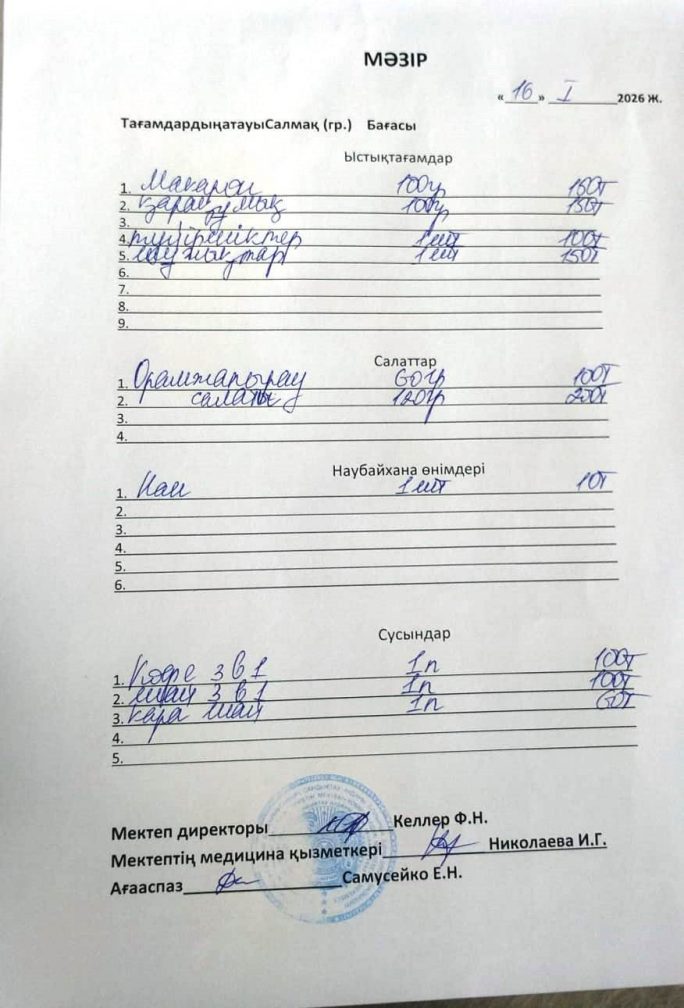 МӘЗІР
« 16 » I 2026 ж.
ТағамдардыңатауыСалмақ (гр.) Бағасы
Ыстықтағамдар
1. Макарон 100гр 150т
2. Қарақұмық 100гр 150т
3.
4. түйіршіктер 1шт 100т
5. шұжықтар 1шт 150т
6.
7.
8.
9.
Салаттар
1. Орамжапырақ 60гр 100т
2. салаты 120гр 200т
3.
4.
Наубайхана өнімдері
1. Нан 1шт 10т
2.
3.
4.
5.
6.
Сусындар
1. Кофе 3 в 1 1п 100т
2. шай 3 в 1 1п 100т
3. кара шай 1п 60т
4.
5.
Мектеп директоры Келлер Ф.Н.
Мектептің медицина қызметкері Николаева И.Г.
Ағааспаз Самусейко Е.Н.